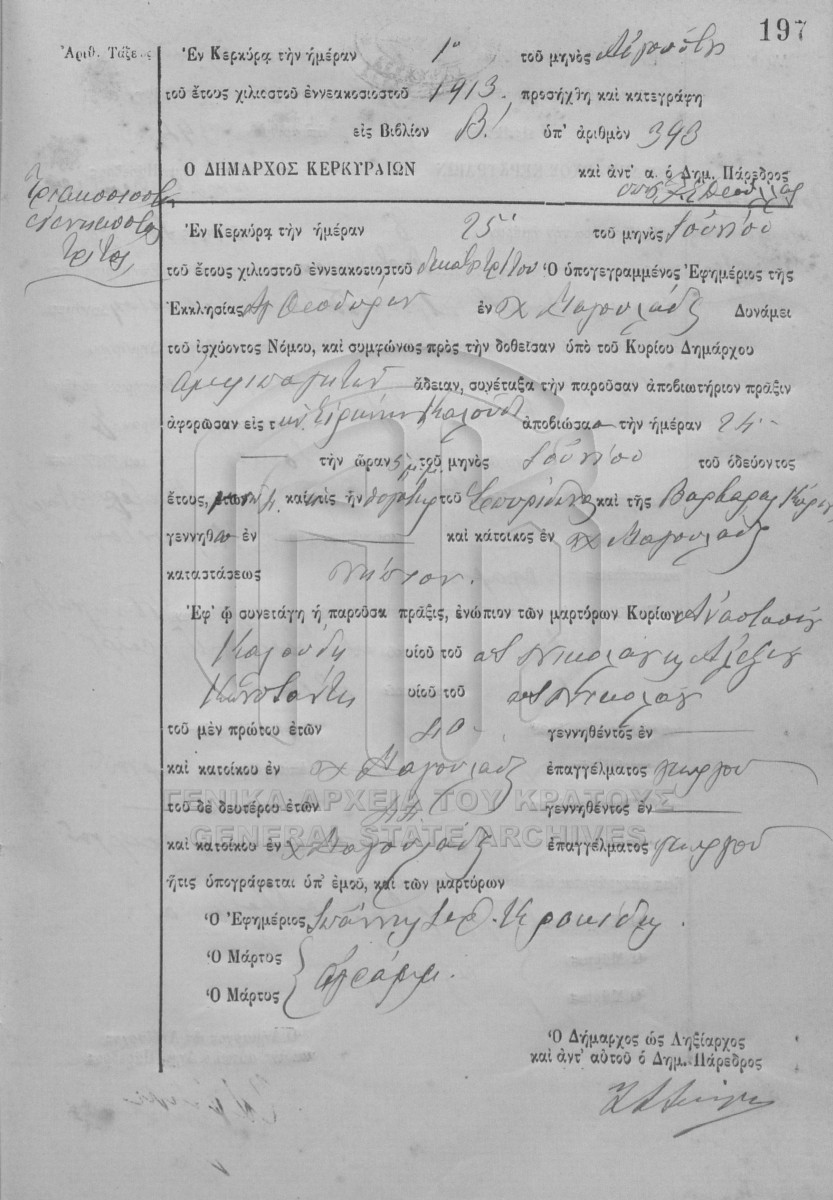 197
Ἀριθ. Τάξεως
Ἐν Κερκύρᾳ τὴν ἡμέραν 1ην τοῦ μηνὸς Αὐγούστου
τοῦ ἔτους χιλιοστοῦ ἐννεακοσιοστοῦ 1913. προσήχθη καὶ κατεγράφη
εἰς Βιβλίον Β! ὑπ' ἀριθμὸν 393
Ο ΔΗΜΑΡΧΟΣ ΚΕΡΚΥΡΑΙΩΝ καὶ ἀντ' α. ὁ Δημ. Πάρεδρος
Τριακοσιοστὴ
ἐνενηκοστὴ
τρίτη
Ἐν Κερκύρᾳ τὴν ἡμέραν 25 τοῦ μηνὸς Ἰουνίου
τοῦ ἔτους χιλιοστοῦ ἐννεακοσιοστοῦ δεκάτου τρίτου Ὁ ὑπογεγραμμένος Ἐφημέριος τῆς
Ἐκκλησίας Ἁγ Θεοδώρων ἐν χ Μαγουλάδες Δυνάμει
τοῦ ἰσχύοντος Νόμου, καὶ συμφώνως πρὸς τὴν δοθεῖσαν ὑπὸ τοῦ Κυρίου Δημάρχου
ἄδειαν, συνέταξα τὴν παροῦσαν ἀποβιωτήριον πρᾶξιν
ἀφορῶσαν εἰς τὴν Εἰρήνην Καλούδη ἀποβιώσασα τὴν ἡμέραν 24
τὴν ὥραν 5 μ.μ. τοῦ μηνὸς Ἰουνίου τοῦ ὁδεύοντος
ἔτους, καὶ ἥτις ἦν θυγάτηρ τοῦ Σπυρίδωνος καὶ τῆς Βαρβάρας
γεννηθ ἐν καὶ κάτοικος ἐν χ Μαγουλάδες
καταστάσεως νήπιον.
Ἐφ' ᾧ συνετάγη ἡ παροῦσα πρᾶξις, ἐνώπιον τῶν μαρτύρων Κυρίων Ἀναστασίου
Καλούδη υἱοῦ τοῦ ποτ Νικολάου κ Ἀλεξίου
Κωνσταντῆ υἱοῦ τοῦ ποτ Νικολάου
τοῦ μὲν πρώτου ἐτῶν 40 γεννηθέντος ἐν
καὶ κατοίκου ἐν χ Μαγουλάδες ἐπαγγέλματος γεωργοῦ
τοῦ δὲ δευτέρου ἐτῶν γεννηθέντος ἐν
καὶ κατοίκου ἐν χ Μαγουλάδες ἐπαγγέλματος γεωργοῦ
ἥτις ὑπογράφεται ὑπ' ἐμοῦ, καὶ τῶν μαρτύρων
Ὁ Ἐφημέριος Ἰωάννης
Ὁ Μάρτυς
ἀγράμμ.
Ὁ Μάρτυς
Ὁ Δήμαρχος ὡς Ληξίαρχος
καὶ ἀντ' αὐτοῦ ὁ Δημ. Πάρεδρος
ΓΕΝΙΚΑ ΑΡΧΕΙΑ ΤΟΥ ΚΡΑΤΟΥΣ
GENERAL STATE ARCHIVES